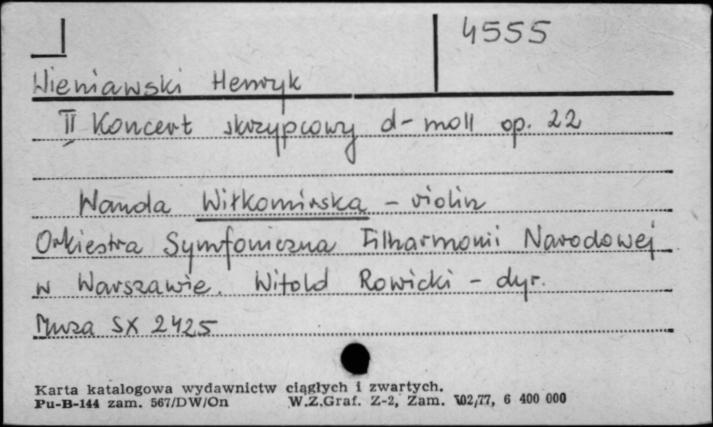 4555
Wieniawski Henryk
II Koncert skrzypcowy d-moll op. 22
Wanda Wiłkomirska - violin
Orkiestra Symfoniczna Filharmonii Narodowej
w Warszawie. Witold Rowicki - dyr.
Muza SX 2425
Karta katalogowa wydawnictw ciągłych i zwartych.
Pu-B-144 zam. 567/DW/On W.Z.Graf. Z-2, Zam. 102/77, 6 400 000